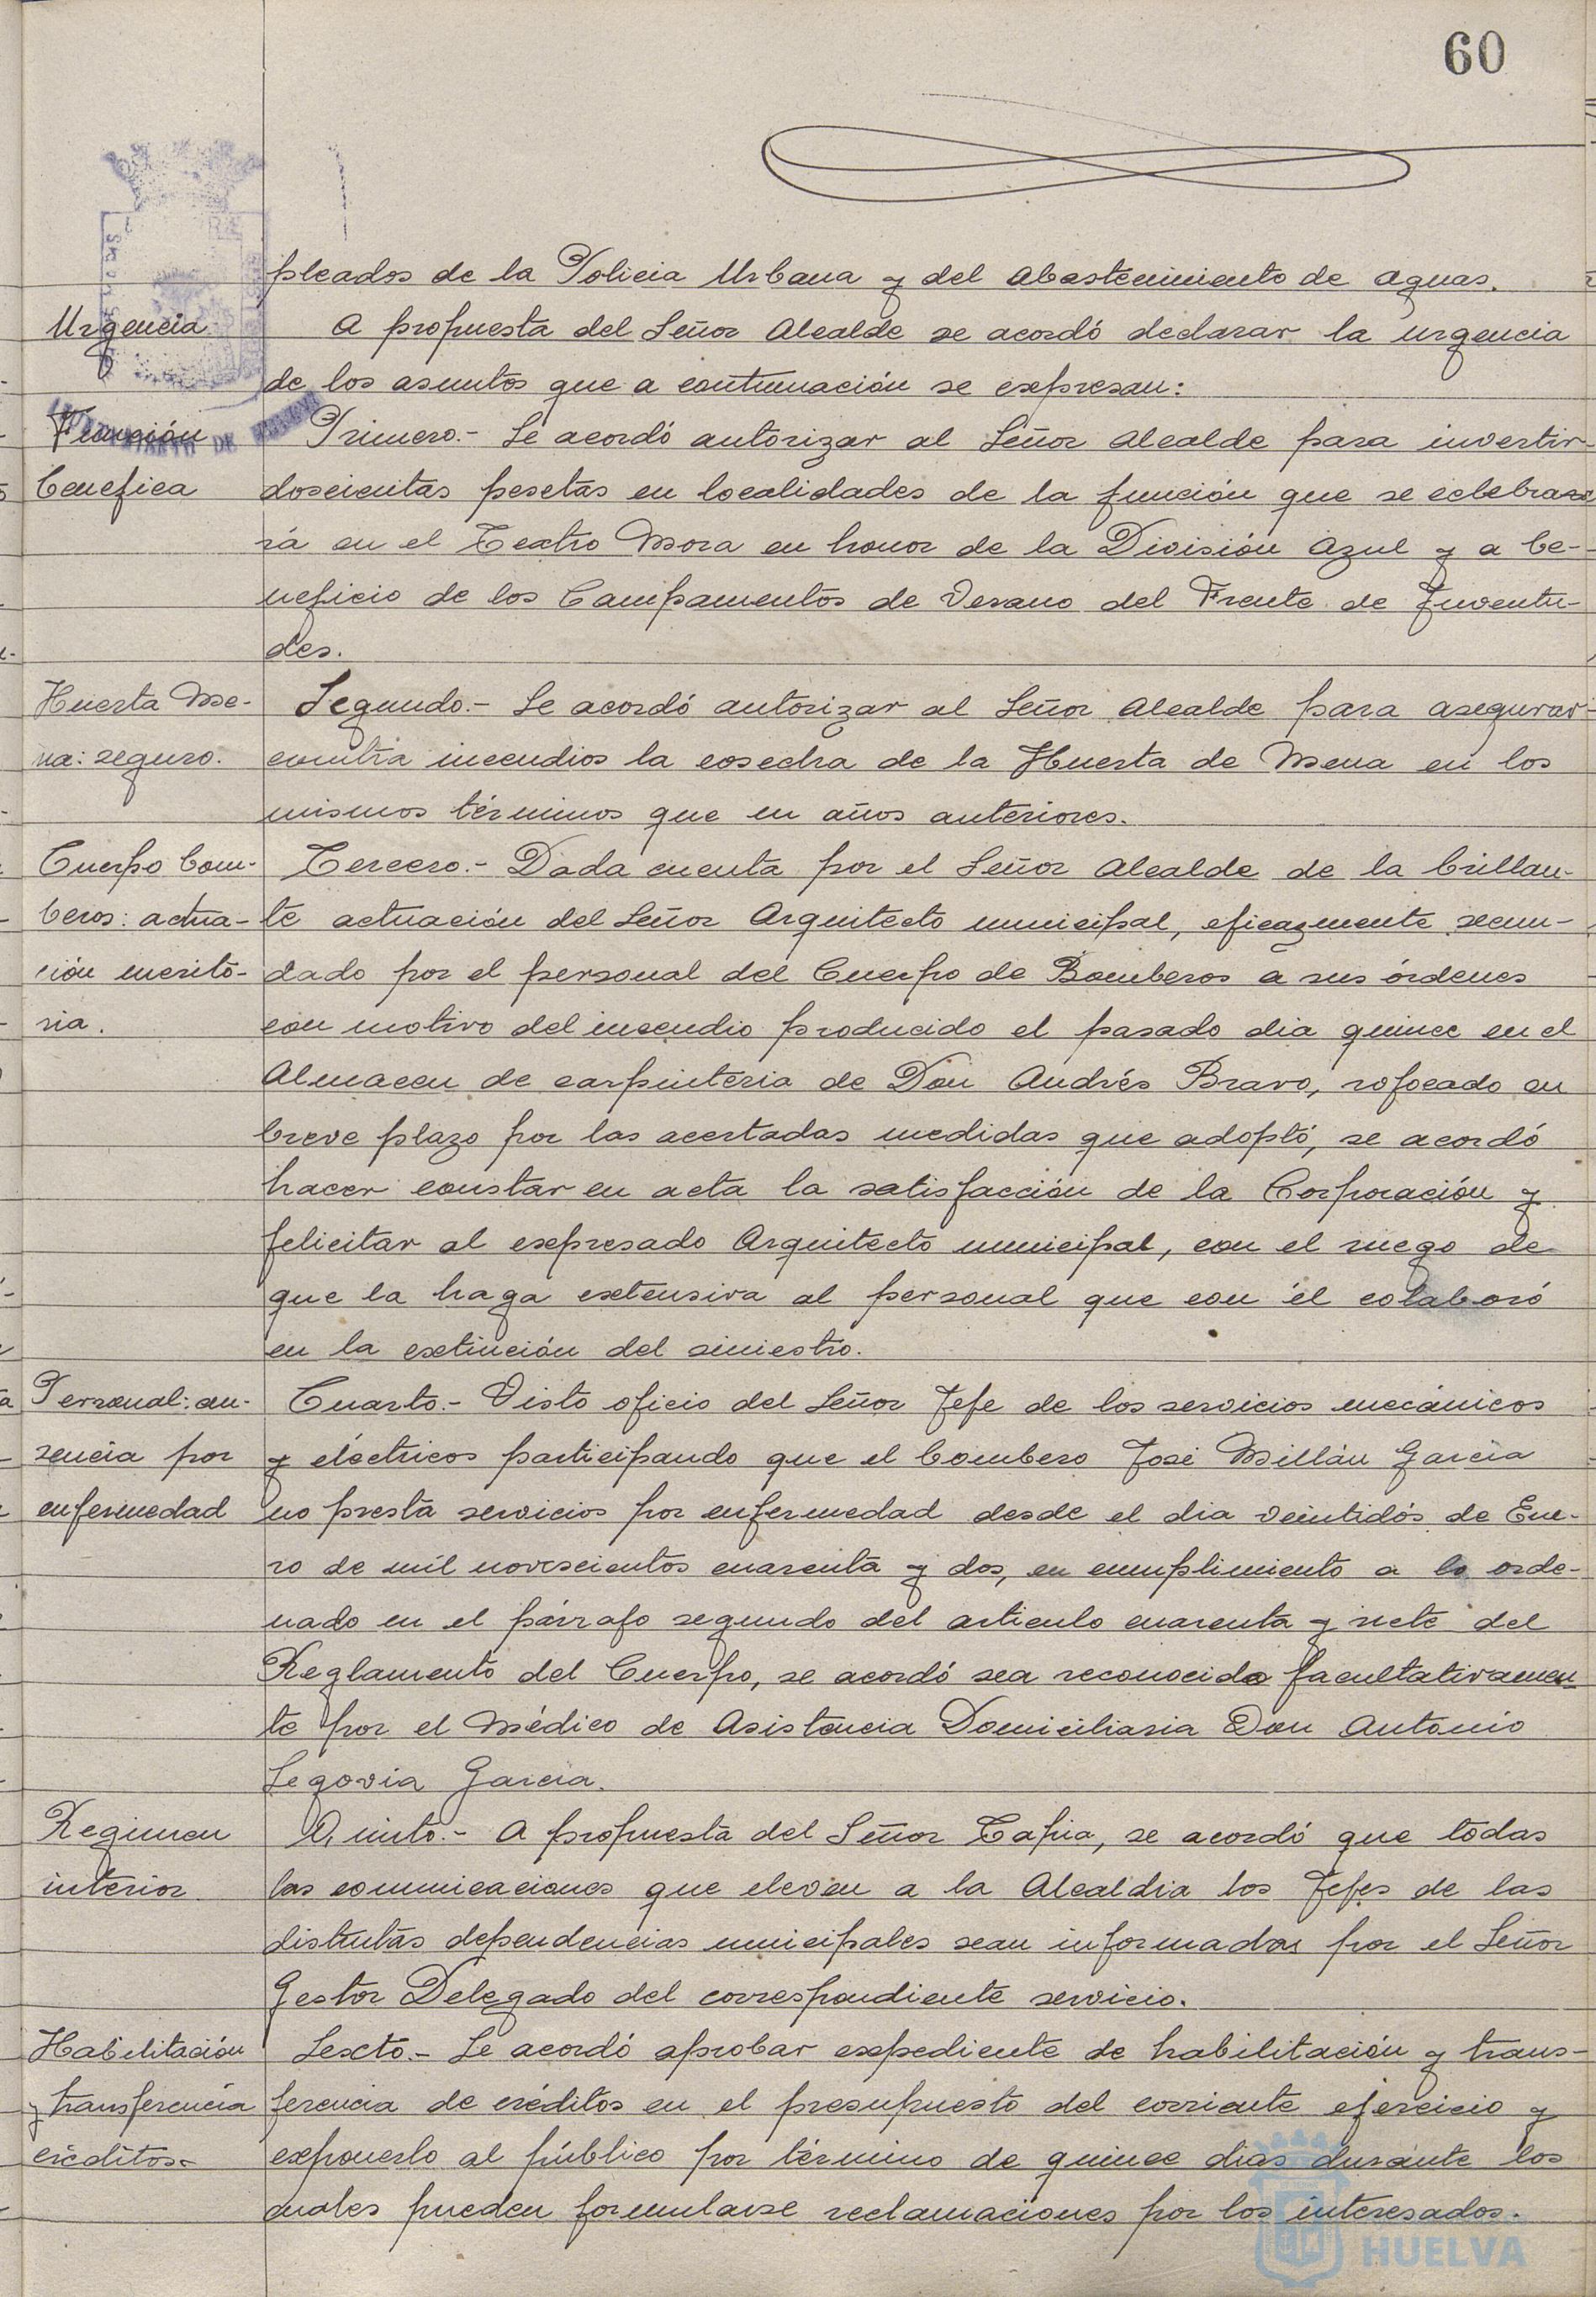 60
pleados de la Policia Urbana y del abastecimiento de aguas.
Urgencia
A propuesta del Señor Alcalde se acordó declarar la urgencia
de los asuntos que a continuación se expresan:
Función
benefica
Primero.- Se acordó autorizar al Señor Alcalde para invertir
doscientas pesetas en localidades de la función que se celebra
rá en el Teatro Mora en honor de la División Azul y a be-
neficio de los Campamentos de Verano del Frente de Juventu-
des.
Huerta Me-
na: seguro.
Segundo.- Se acordó autorizar al Señor Alcalde para asegurar
contra incendios la cosecha de la Huerta de Mena en los
mismos términos que en años anteriores.
Cuerpo bom-
beros: actua-
ción merito-
ria.
Tercero.- Dada cuenta por el Señor Alcalde de la brillan-
te actuación del Señor Arquitecto municipal, eficazmente secun-
dado por el personal del Cuerpo de Bomberos a sus órdenes
con motivo del incendio producido el pasado dia quince en el
Almacen de carpinteria de Don Andrés Bravo, sofocado en
breve plazo por las acertadas medidas que adoptó, se acordó
hacer constar en acta la satisfacción de la Corporación y
felicitar al expresado Arquitecto municipal, con el ruego de
que la haga extensiva al personal que con él colaboró
en la extinción del siniestro.
Personal: au-
sencia por
enfermedad
Cuarto.- Visto oficio del Señor Jefe de los servicios mecánicos
y eléctricos participando que el bombero José Millán Garcia
no presta servicios por enfermedad desde el dia veintidós de Ene-
ro de mil novescientos cuarenta y dos, en cumplimiento a lo orde-
nado en el párrafo segundo del articulo cuarenta y siete del
Reglamento del Cuerpo, se acordó sea reconocido facultativamen-
te por el Médico de Asistencia Domiciliaria Don Antonio
Segovia Garcia.
Regimen
interior.
Quinto.- A propuesta del Señor Tapia, se acordó que todas
las comunicaciones que eleven a la Alcaldia los Jefes de las
distintas dependencias municipales sean informadas por el Señor
Gestor Delegado del correspondiente servicio.
Habilitación
y transferencia
créditos.-
Sexto.- Se acordó aprobar expediente de habilitación y trans-
ferencia de créditos en el presupuesto del corriente ejercicio y
exponerlo al público por término de quince dias durante los
cuales pueden formularse reclamaciones por los interesados.
HUELVA